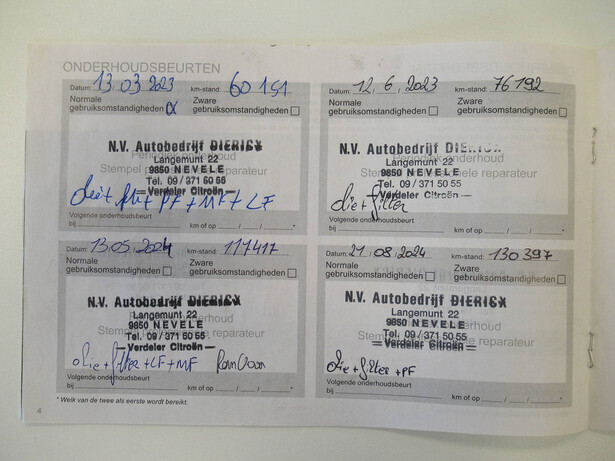 ONDERHOUDSBEURTEN
Datum: 13.03.2023 km-stand: 60 151
Normale gebruiksomstandigheden Zware gebruiksomstandigheden
Periodiek onderhoud
Stempel reparateur
N.V. Autobedrijf DIERICX
Langemunt 22
9850 NEVELE
Tel. 09/371 50 55
— Verdeler Citroën —
+ PF + MF + LF
Volgende onderhoudsbeurt
bij km of op / / *
Datum: 12.6.2023 km-stand: 76192
Normale gebruiksomstandigheden Zware gebruiksomstandigheden
Periodiek onderhoud
Stempel reparateur
N.V. Autobedrijf DIERICX
Langemunt 22
9850 NEVELE
Tel. 09/371 50 55
— Verdeler Citroën —
olie + filter
Volgende onderhoudsbeurt
bij km of op / / *
Datum: 13.05.2024 km-stand: 117417
Normale gebruiksomstandigheden Zware gebruiksomstandigheden
Stempel reparateur
N.V. Autobedrijf DIERICX
Langemunt 22
9850 NEVELE
Tel. 09/371 50 55
— Verdeler Citroën —
olie + filter + LF + MF
Volgende onderhoudsbeurt
bij km of op / / *
Datum: 21.08.2024 km-stand: 130 397
Normale gebruiksomstandigheden Zware gebruiksomstandigheden
Stempel reparateur
N.V. Autobedrijf DIERICX
Langemunt 22
9850 NEVELE
Tel. 09/371 50 55
— Verdeler Citroën —
olie + filter + PF
Volgende onderhoudsbeurt
bij km of op / / *
* Welk van de twee als eerste wordt bereikt.
4